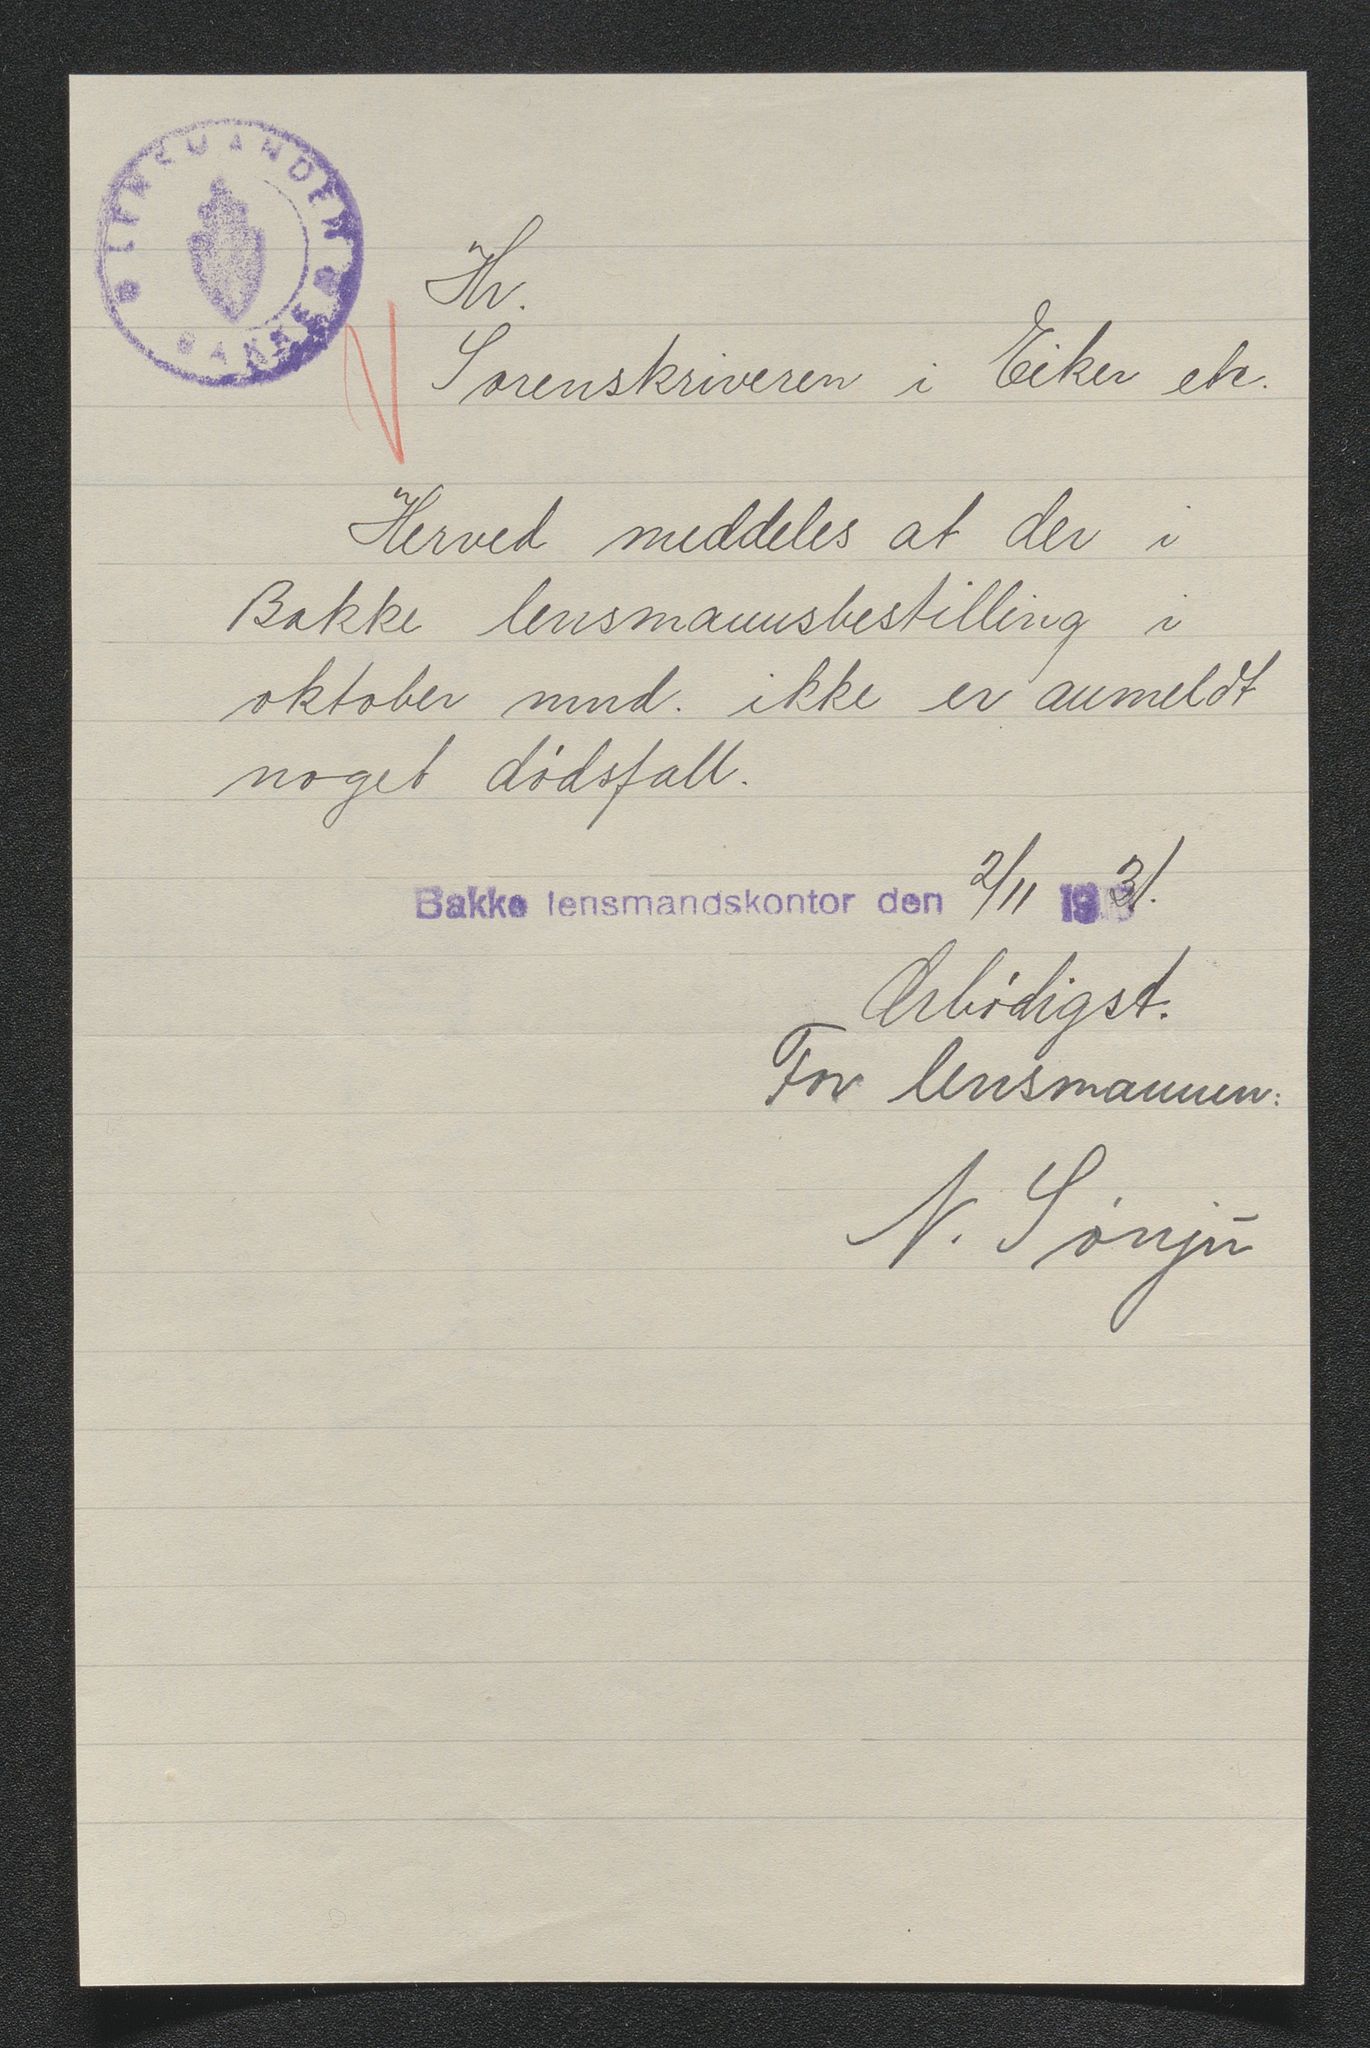 LENSMANDEN
BAKKE
Hr.
Sorenskriveren i Eiker etc.
Herved meddeles at der i
Bakke lensmannsbestilling i
oktober mnd. ikke er anmeldt
noget dødsfall.
Bakke lensmandskontor den 2/11 1931.
Ærbødigst.
For lensmannen:
N. Sønju